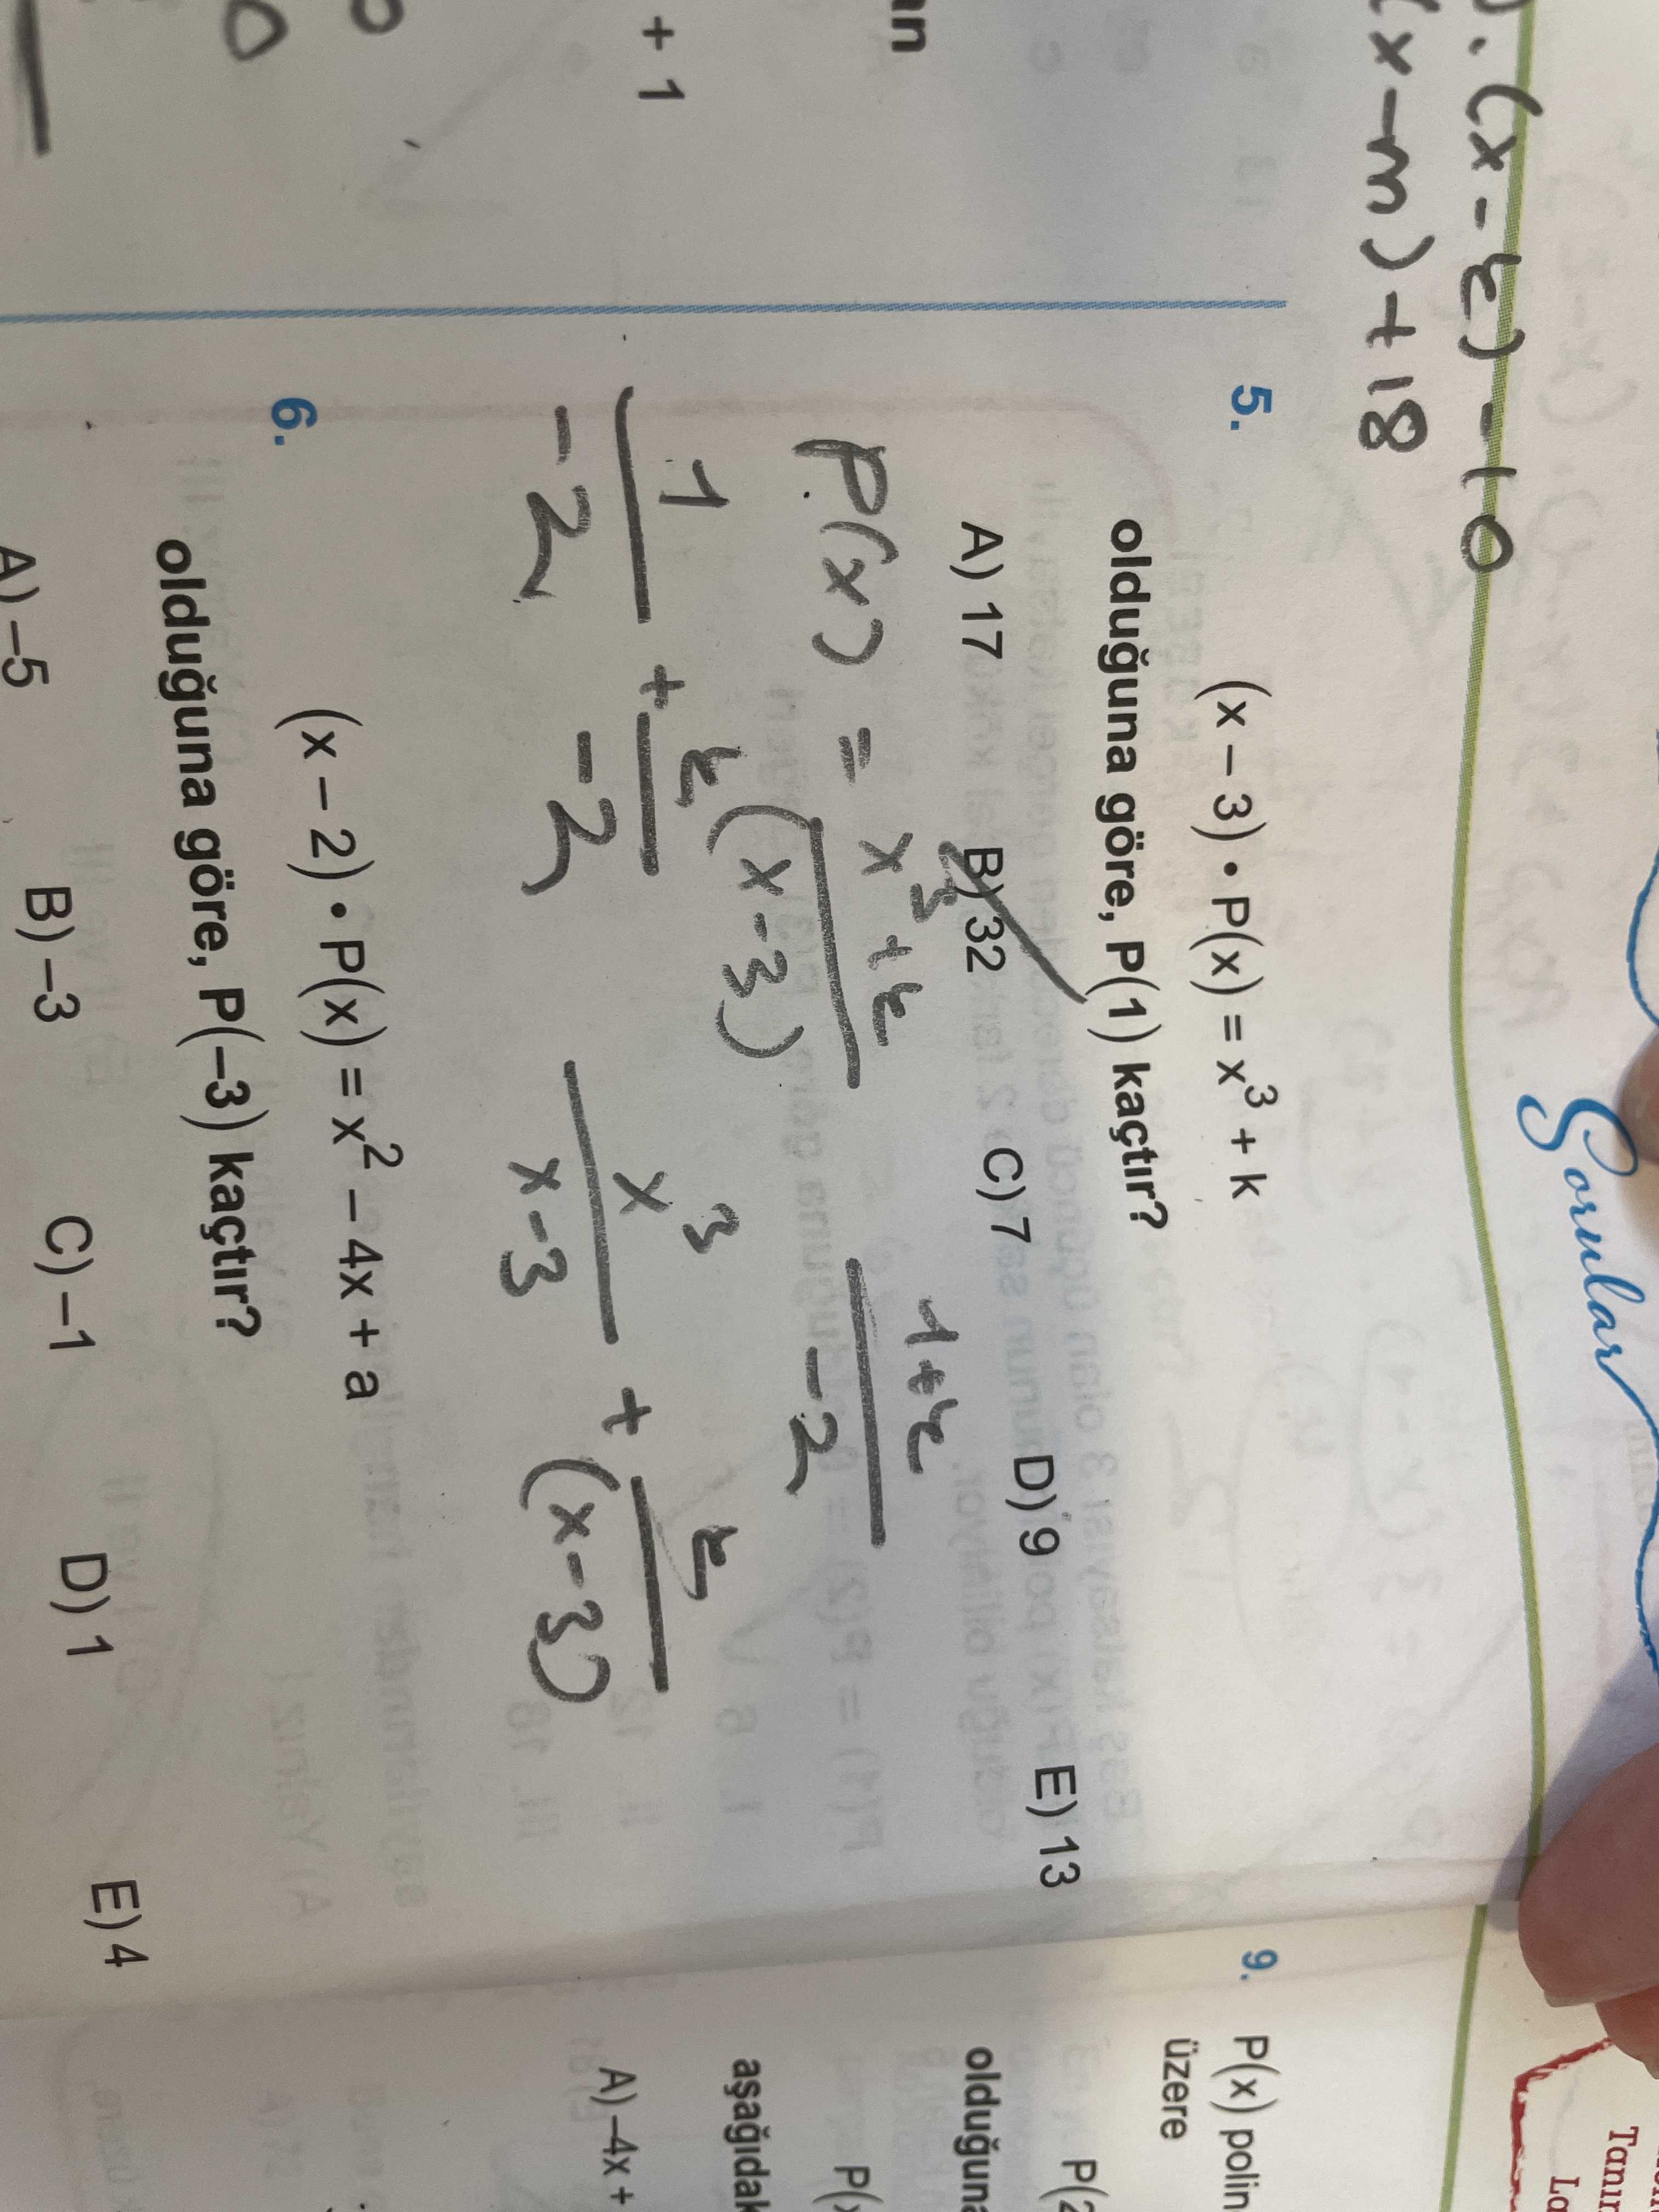 ). (x - k) - 10
(x - m) + 18
Sorular
an
+ 1
5.
(x – 3) • P(x) = x³ + k
olduğuna göre, P(1) kaçtır?
A) 17 B) 32 C) 7 D) 9 E) 13
P(x) = x³ + k
(x - 3)
1 + k
-2
1 + k
-2 -2
x³ + k
x - 3 (x - 3)
6.
(x – 2) • P(x) = x² – 4x + a
olduğuna göre, P(–3) kaçtır?
A) –5 B) –3 C) –1 D) 1 E) 4
9. P(x) polin
üzere
P(2
olduğuna
P(x
aşağıdak
A) –4x +
Tanım